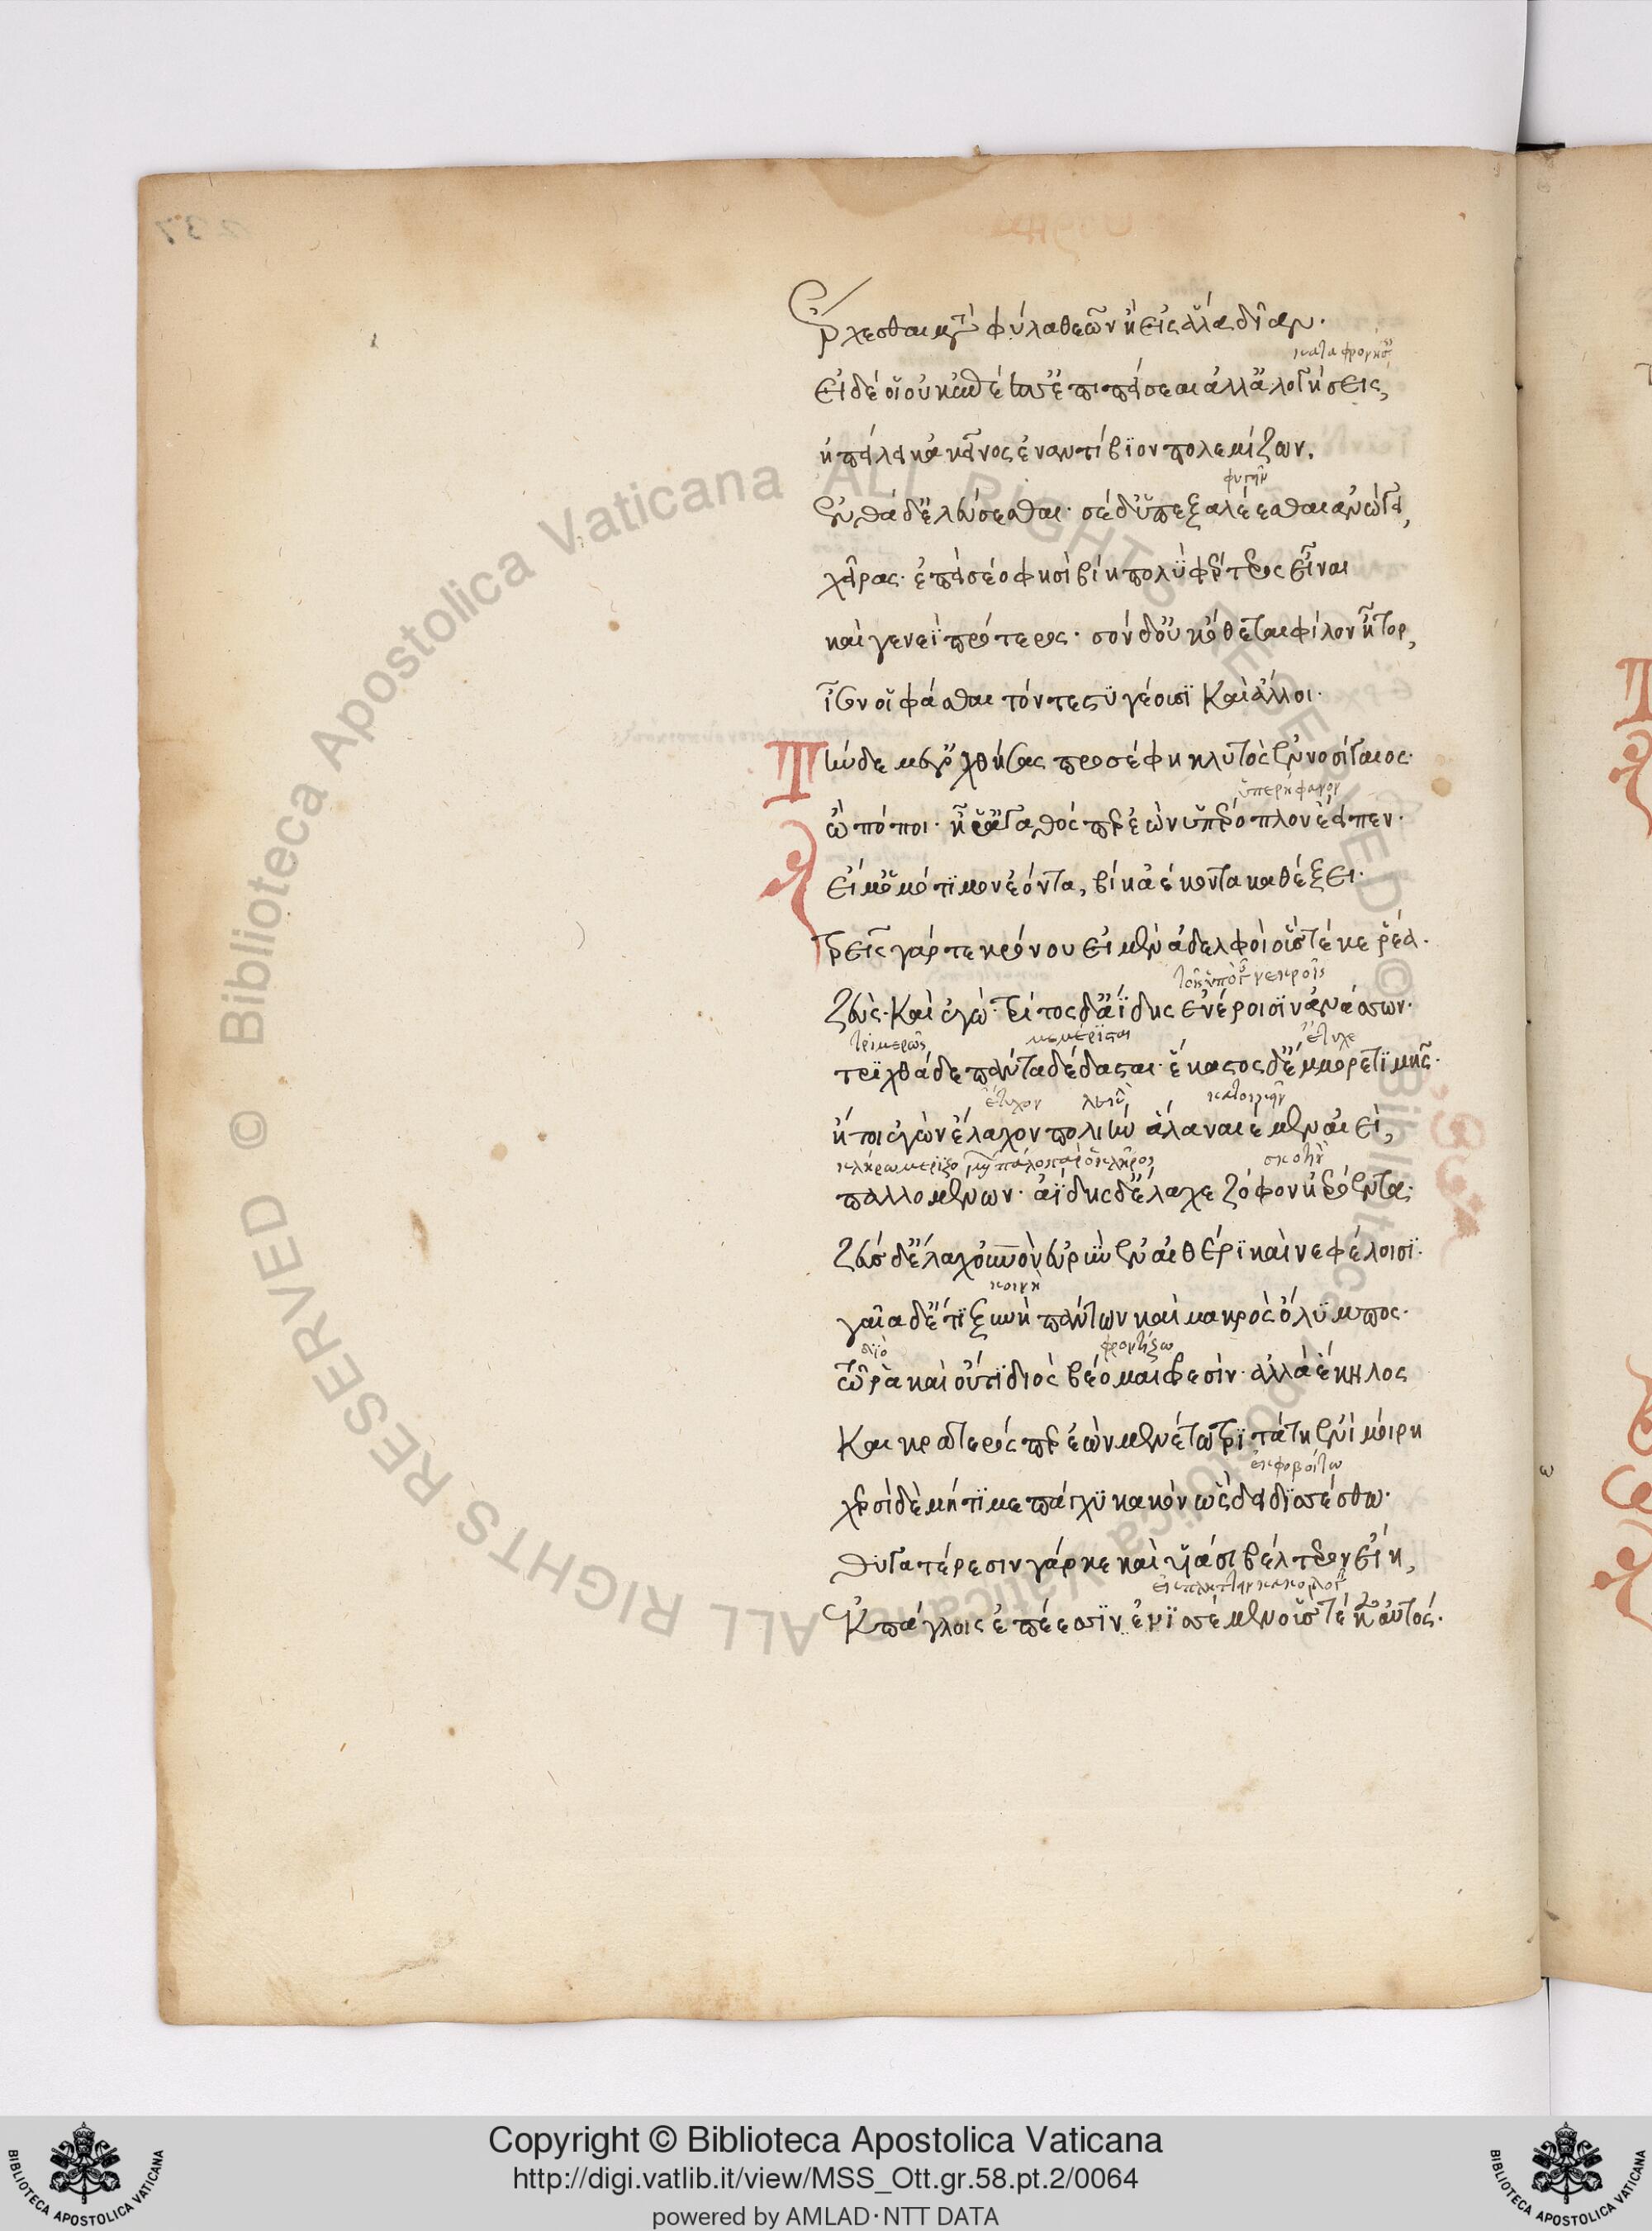 Ἔρχεσθαι μετὰ φῦλα θεῶν ἢ εἰς ἅλα δῖαν·
καταφρονήσεις
εἰ δέ οἱ οὐκ ἐπέεσσ' ἐπιπείσεαι ἀλλ' ἀλογήσεις,
ἠπείλει κἀκεῖνος ἐναντίβιον πολεμίζων.
φυγεῖν
ἐνθάδ' ἐλεύσεσθαι· σὲ δ' ὑπεξαλέεσθαι ἀνώγει,
χεῖρας· ἐπεὶ σέο φησὶ βίῃ πολὺ φέρτερος εἶναι
καὶ γενεῇ πρότερος· σὸν δ' οὐκ ὄθεται φίλον ἦτορ,
ἶσόν οἱ φάσθαι τόν τε στυγέουσι καὶ ἄλλοι·
Τὴν δὲ μέγ' ὀχθήσας προσέφη κλυτὸς ἐννοσίγαιος·
ὑπερήφανον
ὢ πόποι· ἦ ῥ' ἀγαθός περ ἐὼν ὑπέροπλον ἔειπεν·
εἴ μ' ὁμότιμον ἐόντα, βίῃ ἀέκοντα καθέξει·
Τρεῖς γάρ τ' ἐκ κρόνου εἰμὲν ἀδελφεοὶ οὓς τέκε ῥέα·
νεκροῖς
Ζεὺς· καὶ ἐγώ· τρίτος δ' ἀΐδης ἐνέροισιν ἀνάσσων·
τριμερῶς μεμέρισται ἔτυχε
τριχθὰ δὲ πάντα δέδασται· ἕκαστος δ' ἔμμορε τιμῆς·
ἔτυχον λευκὴν κατοικεῖν
ἤτοι ἐγὼν ἔλαχον πολιὴν ἅλα ναιέμεν αἰεὶ,
σκοτεινὸν
παλλομένων· ἀΐδης δ' ἔλαχε ζόφον ἠερόεντα·
Ζεὺς δ' ἔλαχ' οὐρανὸν εὐρὺν ἐν αἰθέρι καὶ νεφέλῃσι·
κοινὴ
γαῖα δ' ἔτι ξυνὴ πάντων καὶ μακρὸς ὄλυμπος·
διὸ φροντίζω
τῷ ῥα καὶ οὔτι διὸς βέομαι φρεσίν· ἀλλὰ ἕκηλος
Καὶ κρατερός περ ἐὼν μενέτω τριτάτῃ ἐνὶ μοίρῃ
ἐκφοβείτω
χερσὶ δὲ μήτι με πάγχυ κακὸν ὣς δειδισσέσθω·
θυγατέρεσσιν γάρ κε καὶ υἱάσι βέλτερον εἴη,
Ἐκπάγλοις ἐπέεσσιν ἐνισσέμεν οὓς τέκεν αὐτός·
Copyright © Biblioteca Apostolica Vaticana
http://digi.vatlib.it/view/MSS_Ott.gr.58.pt.2/0064
powered by AMLAD·NTT DATA